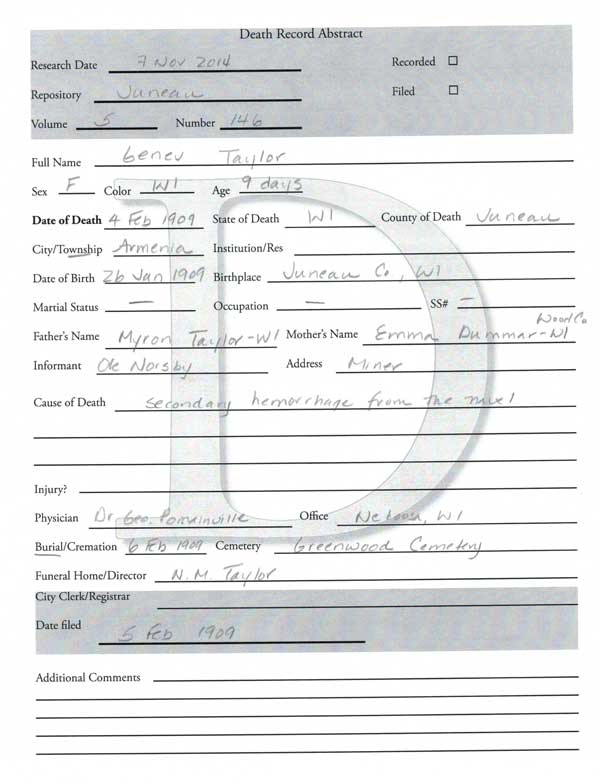 Death Record Abstract
Research Date 7 Nov 2014 Recorded ☐
Repository Juneau Filed ☐
Volume 5 Number 146
Full Name Genev Taylor
Sex F Color WI Age 9 days
Date of Death 4 Feb 1909 State of Death WI County of Death Juneau
City/Township Armenia Institution/Res
Date of Birth 26 Jan 1909 Birthplace Juneau Co, WI
Martial Status — Occupation — SS# —
Wood Co
Father's Name Myron Taylor-WI Mother's Name Emma Dummar-WI
Informant Ole Norsby Address Miner
Cause of Death secondary hemorrhage from the navel
Injury?
Physician Dr. Geo. Pomainville Office Nekoosa, WI
Burial/Cremation 6 Feb 1909 Cemetery Greenwood Cemetery
Funeral Home/Director N.M. Taylor
City Clerk/Registrar
Date filed 5 Feb 1909
Additional Comments